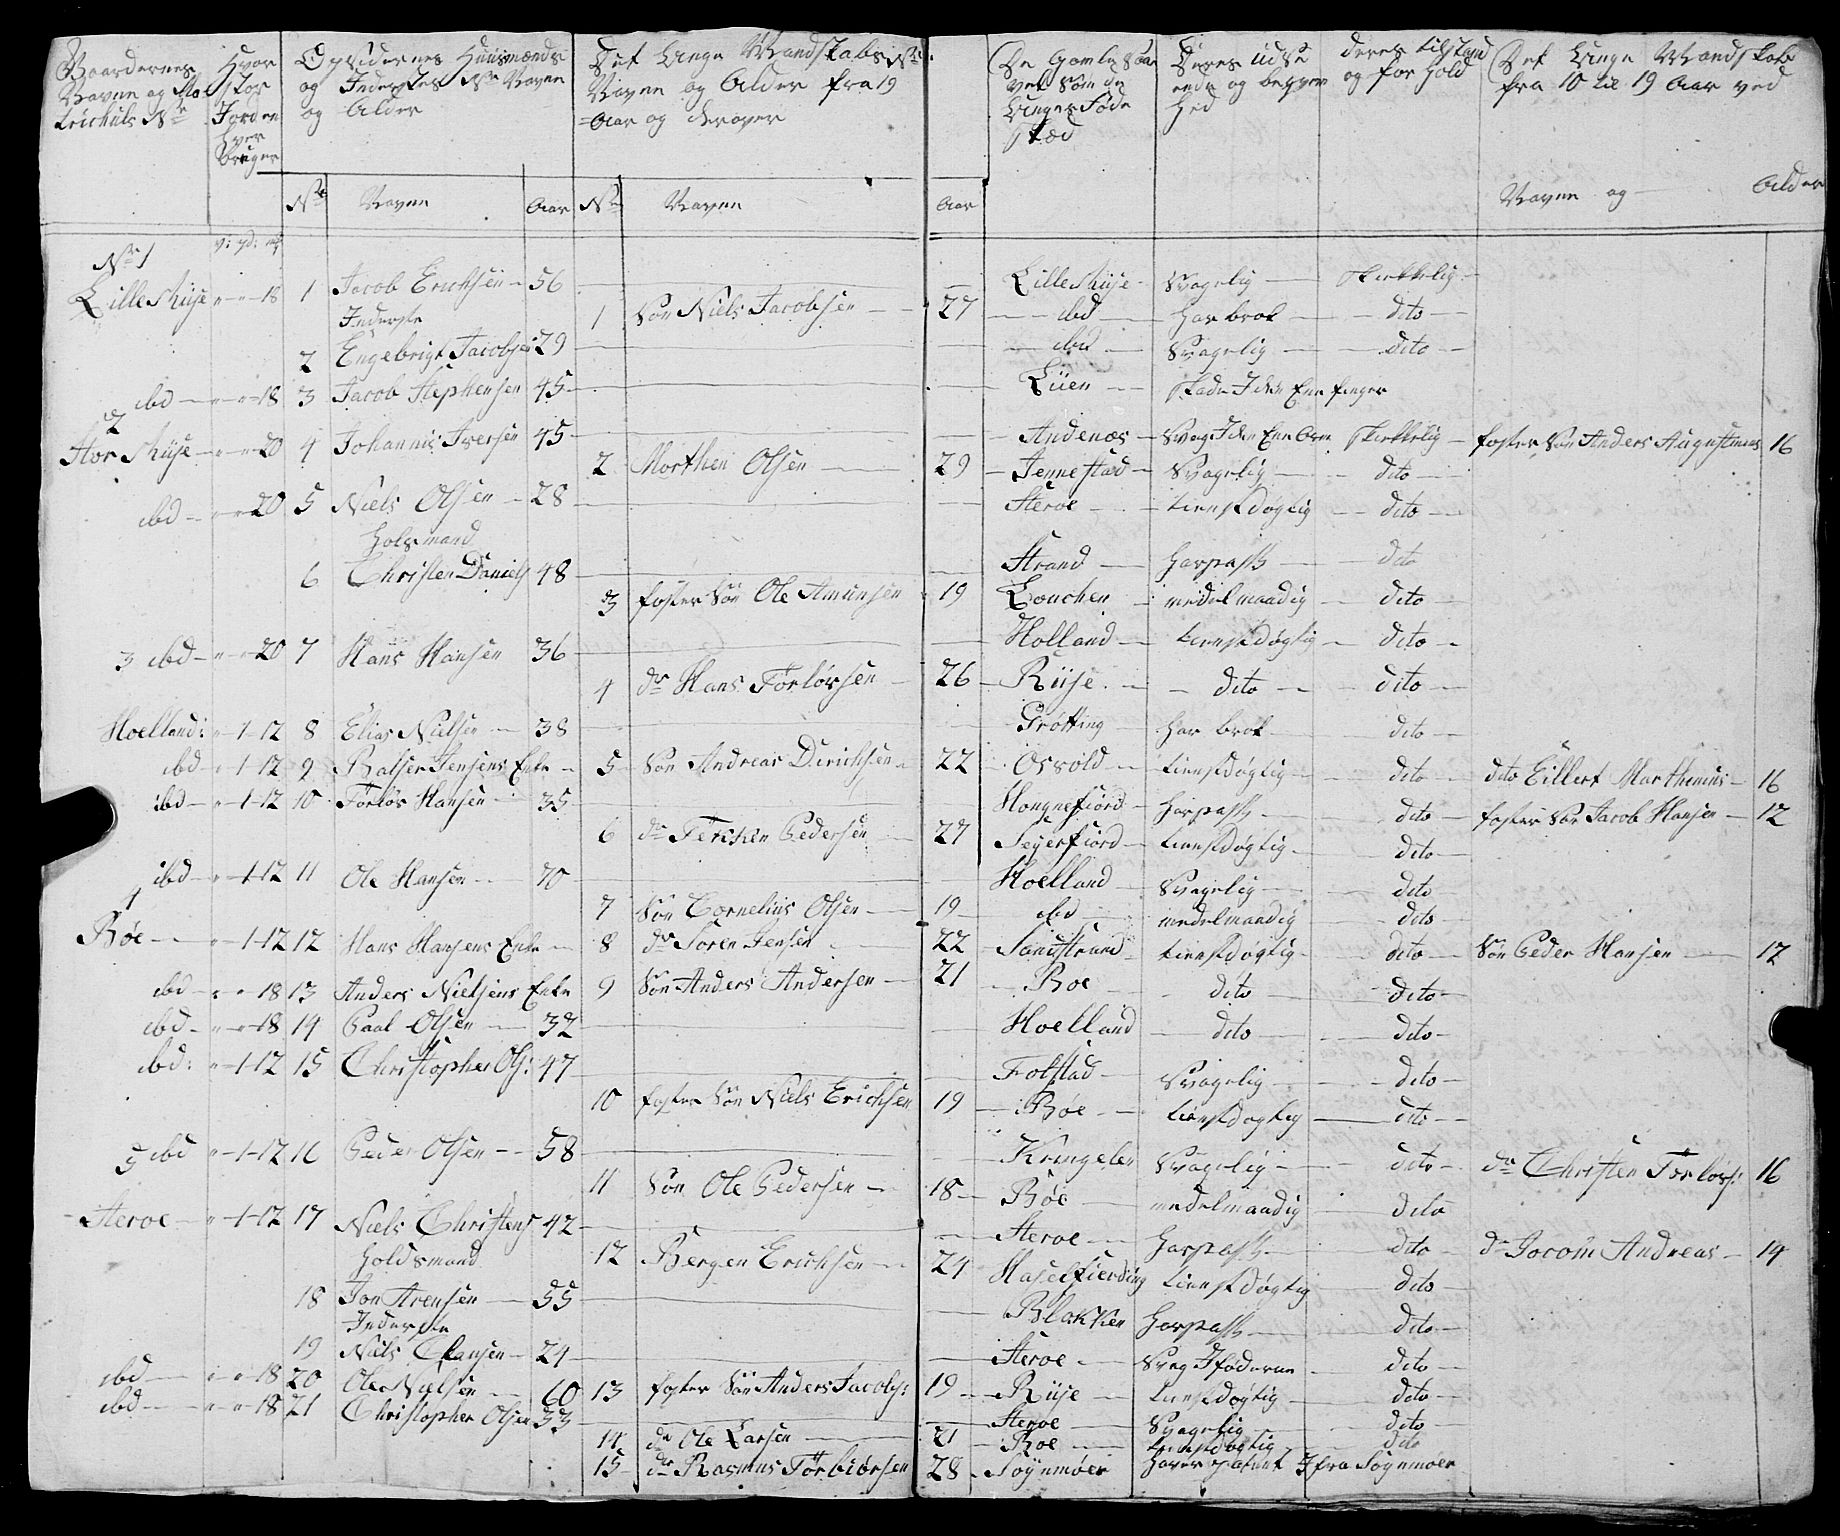 Gaardernes Navne og Ma- trichuls No
Hvor stor Jorden hver bruger
Opsidernes Huusmænds og Inderstes No Navne og Alder
Det Unge Mandskabs No Navne og Alder fra 19 Aar og derover
De Gamle Saavel Som de Unges Føde Stæd
Deres Udseende og beqvemhed
deres tilstand og forhold
Det Unge Mandskab fra 10 til 19 Aar ved Navne og Alder
No Navne Aar No Navne Aar
No 1 v: pd: mk
Lille Rüse - - 18 1 Jacob Erichsen 56 Lille Rüse Svagelig Skickkelig
Inderste 1 Søn Niels Jacobsen 27 ibd har brok dito
2 Engebrigt Jacobsen 29 ibd Svagelig dito
ibd - - 18 3 Jacob Stephensen 45 Lüen Skade I den Ene finger
2
Stor Rüse - - 20 4 Johannis Iversen 45 Andenæs Svag I den Ene Arm Skickkelig foster Søn Anders Augustinus 16
2 Morthen Olsen 29 Jennestad Svagelig dito
ibd - - 20 5 Niels Olsen 28 Steroe tienstdøgtig dito
Holsmand
6 Christen Daniels 48 Strand har pass dito
3 foster Søn Ole Amunsen 19 medelmaadig dito
3 ibd - - 20 7 Hans Hansen 36 Holland tienstdøgtig dito
4 do Hans Torløvsen 26 Rüse dito dito
Hoelland: - 1 - 12 8 Elias Nielsen 38 Grøtting har brok dito
ibd - 1 - 12 9 Balser Jensens Enke 5 Søn Andreas Dirichsen 22 Osvold tienstdøgtig dito dito Eillert Marthinus 16
ibd - 1 - 12 10 Torløv Hansen 35 Hongnefiord har pass dito foster Søn Jacob Hansen 12
6 do Pedersen 27 Seyerfiord tienstdøgtig dito
ibd - 1 - 12 11 Ole Hansen 70 Hoelland Svagelig dito
4 7 Søn Cornelius Olsen 19 ibd medelmaadig dito
Bøe - 1 - 12 12 Hans Hansens Enke 8 do Søren Jensen 22 Sandstrand tienstdøgtig dito Søn Peder Hansen 12
ibd - - 18 13 Anders Nielsens Enke 9 Søn Anders Andersen 21 Boe dito dito
ibd - - 18 14 Paal Olsen 32 Hoelland dito dito
ibd: - 1 - 12 15 Christopher Ols: 47 Folstad Svagelig dito
10 foster Søn Niels Erichsen 19 Bøe tienstdøgtig dito
5 ibd - 1 - 12 16 Peder Olsen 58 Kringelen Svagelig dito do Christen Torløvs: 16
11 Søn Ole Pedersen 18 Bøe medelmaadig dito
Steroe - 1 - 12 17 Niels Christens 42 Steroe har pass dito do Jocom Andreas 14
Holdsmand 12 Bergen Erichsen 24 Haselfierding tienstdøgtig dito
18 Jon Arensen 55 Blokken har pass dito
Inderste
19 Niels Clausen 24 Steroe Svag I fødderne dito
ibd - - 18 20 Ole Nielsen 60 13 foster Søn Anders Jacobs: 19 Rüse tienstdøgtig dito
ibd - - 18 21 Christopher Olsen 53 Steroe Svagelig dito
14 do Ole Larsen 21 Boe tienstdøgtig dito
15 do Rasmus Torbiørsen 28 Søynmøer haver patent I fra Søynmøer